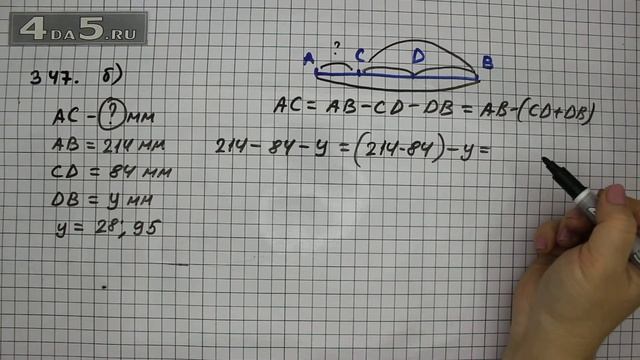 4DA5.RU
347. б)
A ? C D B
AC - ? мм
AC = AB - CD - DB = AB - (CD + DB)
AB = 214 мм
214 - 84 - y = (214 - 84) - y =
CD = 84 мм
DB = y мм
y = 28; 95